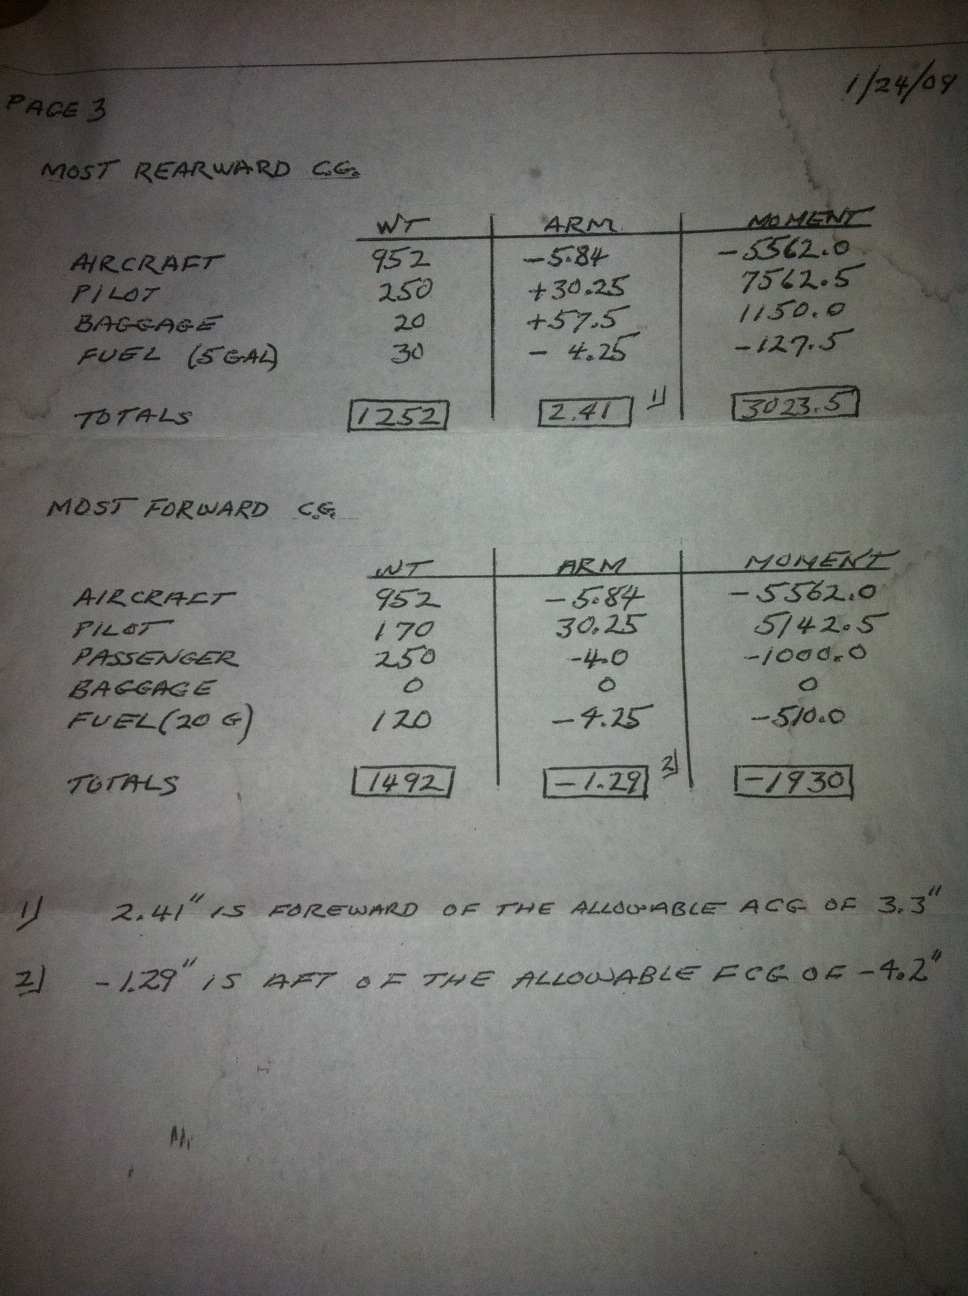 PAGE 3 1/24/09
MOST REARWARD C.G.
WT ARM MOMENT
AIRCRAFT 952 -5.84 -5562.0
PILOT 250 +30.25 7562.5
BAGGAGE 20 +57.5 1150.0
FUEL (5 GAL) 30 - 4.25 -127.5
TOTALS 1252 2.41 1) 3023.5
MOST FORWARD C.G.
WT ARM MOMENT
AIRCRAFT 952 -5.84 -5562.0
PILOT 170 30.25 5142.5
PASSENGER 250 -4.0 -1000.0
BAGGAGE 0 0 0
FUEL (20 G) 120 -4.25 -510.0
TOTALS 1492 -1.29 2) -1930
1) 2.41" IS FOREWARD OF THE ALLOWABLE ACG OF 3.3"
2) -1.29" IS AFT OF THE ALLOWABLE FCG OF -4.2"